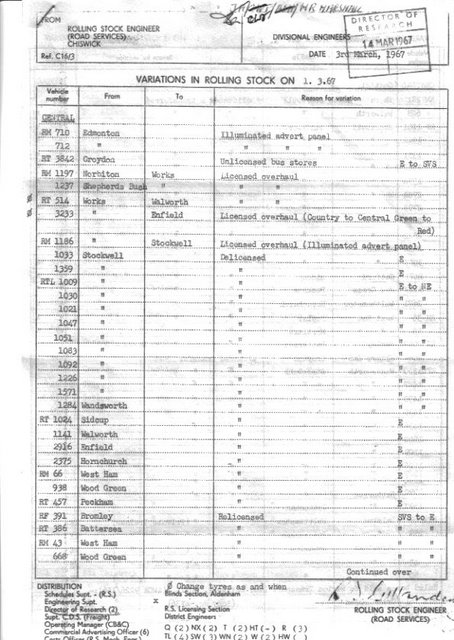 FROM
ROLLING STOCK ENGINEER
(ROAD SERVICES)
CHISWICK
Ref. C16/3
DIVISIONAL ENGINEERS
DATE 3rd March, 1967
DIRECTOR OF
RESEARCH
14 MAR 1967
VARIATIONS IN ROLLING STOCK ON 1. 3.67
Vehicle number From To Reason for variation
CENTRAL
RM 710 Edmonton Illuminated advert panel
712 " " " "
RT 3842 Croydon Unlicensed bus stores E to SVS
RM 1197 Norbiton Works Licensed overhaul
1237 Shepherds Bush " " "
Ø RT 514 Works Walworth " "
Ø 3233 " Enfield Licensed overhaul (Country to Central Green to
Red)
RM 1186 " Stockwell Licensed overhaul (Illuminated advert panel)
1033 Stockwell Delicensed E
1359 " " E
RTL 1009 " " E to NE
1030 " " " "
1021 " " " "
1047 " " " "
1051 " " " "
1083 " " " "
1092 " " " "
1226 " " " "
1571 " " " "
1284 Wandsworth " " "
RT 1024 Sidcup " E
1141 Walworth " E
2916 Enfield " E
2375 Hornchurch " E
RM 66 West Ham " E
938 Wood Green " E
RT 457 Peckham " E
RF 391 Bromley Relicensed SVS to E
RT 386 Battersea " " "
RM 43 West Ham " " "
668 Wood Green " " "
Continued over
DISTRIBUTION
Schedules Supt. - (R.S.)
Engineering Supt. x
Director of Research (2)
Supt. C.D.S. (Freight)
Operating Manager (CB&C)
Commercial Advertising Officer (6)
Ø Change tyres as and when
Blinds Section, Aldenham
R.S. Licensing Section
District Engineers
Q (2) NX (2) T (2) HT (-) R (3)
TL (4) SW (3) WN (2) W (2) HW ( )
ROLLING STOCK ENGINEER
(ROAD SERVICES)